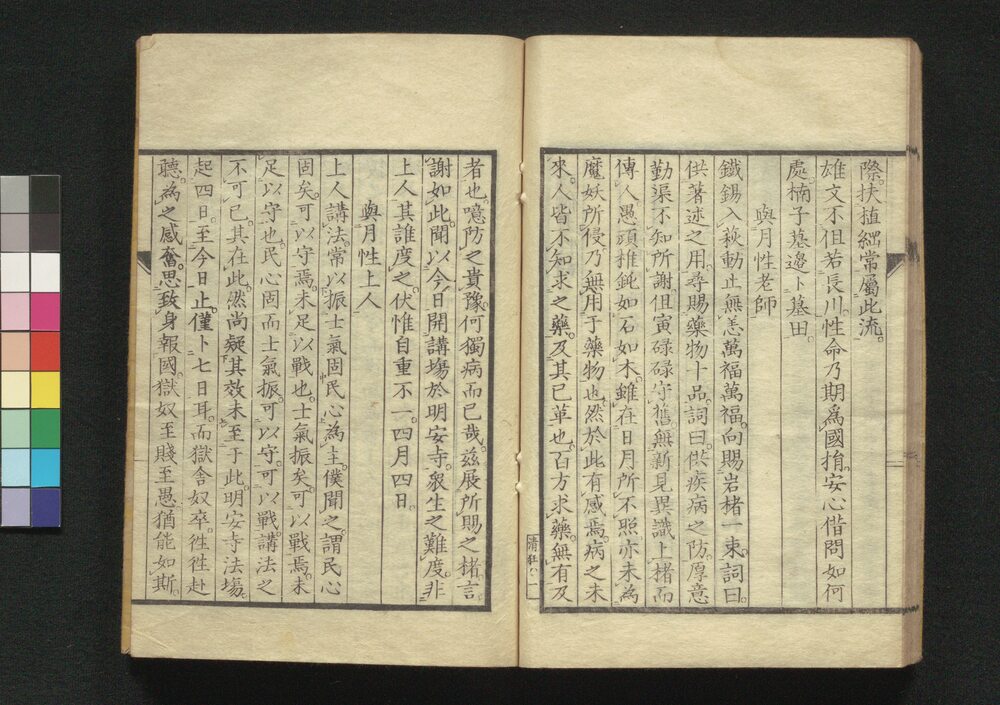 際。扶植綱常屬此流。
雄文不但若長川。性命乃期爲國捐。安心借問如何
處。楠子墓邊卜墓田。
與月性老師
鐵錫入萩動止無恙萬福萬福。向賜岩楮一束。詞曰。
供著述之用。尋賜藥物十品。詞曰。供疾病之防。厚意
勤渠不知所謝。但寅碌碌守舊。無新見異識上楮而
傳人。愚頭椎鈍如石如木。雖在日月所不照亦未為
魔妖所侵。乃無用于藥物也。然於此有感焉。病之未
來。人皆不知求之藥。及其已革也。百方求藥。無有及
者也。噫防之貴豫。何獨病而已哉。玆展所賜之楮。言
謝如此。聞以今日開講塲於明安寺。衆生之難度。非
上人其誰度之。伏惟自重不一。四月四日。
與月性上人
上人講法。常以振士氣固民心為主。僕聞之。謂民心
固矣。可以守焉。未足以戰也。士氣振矣。可以戰焉。未
足以守也。民心固而士氣振。可以守。可以戰。講法之
不可已。其在此。然尚疑其效未至于此。明安寺法塲。
起四日。至今日止。僅卜七日耳。而獄舍奴卒。往往赴
聽。為之感奮。思致身報國。獄奴至賤至愚。猶能如斯。
清狂